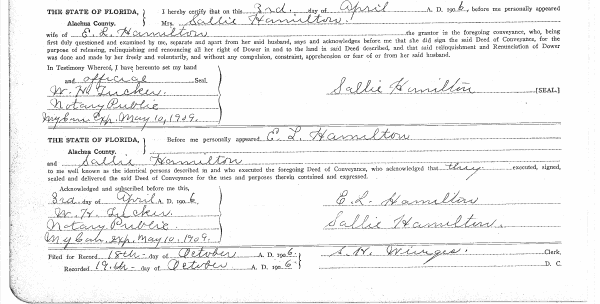 THE STATE OF FLORIDA, I hereby certify that on this 3rd. day of April A. D. 190 6, before me personally appeared
Alachua County. Mrs. Sallie Hamilton.
wife of E. L. Hamilton the grantor in the foregoing conveyance, who, being
first duly questioned and examined by me, separate and apart from her said husband, says and acknowledges before me that she did sign the said Deed of Conveyance, for the
purpose of releasing, relinquishing and renouncing all her right of Dower in and to the land in said Deed described, and that said relinquishment and Renunciation of Dower
was done and made by her freely and voluntarily, and without any compulsion, constraint, apprehension or fear of or from her said husband.
In Testimony Whereof, I have hereunto set my hand
and official Seal.
W. H. Tucker. Sallie Hamilton [SEAL.]
Notary Public
My Com. Exp. May 10, 1909.
THE STATE OF FLORIDA, Before me personally appeared E. L. Hamilton
Alachua County.
and Sallie Hamilton
to me well known as the identical persons described in and who executed the foregoing Deed of Conveyance, who acknowledged that they executed, signed,
sealed and delivered the said Deed of Conveyance for the uses and purposes therein contained and expressed.
Acknowledged and subscribed before me this,
3rd. day of April A. D. 190 6. E. L. Hamilton
W. H. Tucker Sallie Hamilton.
Notary Public.
My Com. exp. May 10, 1909.
Filed for Record 18th day of October A. D. 190 6. S. H. Wienges. Clerk.
Recorded 19th day of October A. D. 190 6. D. C.